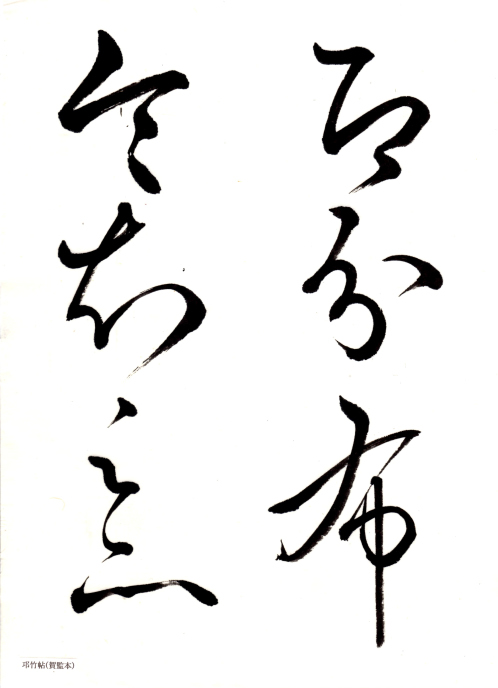 即分布
令知足下
邛竹帖(賀監本)